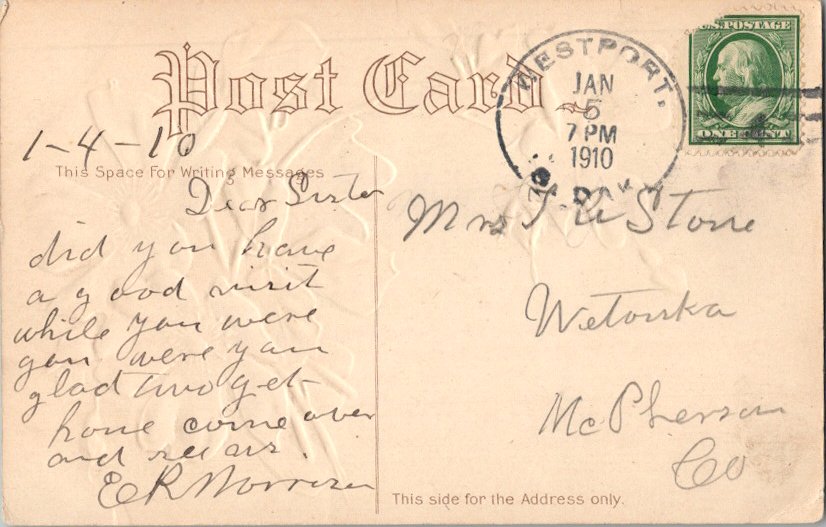 Post Card
U.S. POSTAGE
ONE CENT
WESTPORT.
JAN
5
7 PM
1910
S. DAK.
1-4-10
This Space For Writing Messages
Dear Sister
did you have
a good visit
while you were
gon were you
glad two get
home come over
and see us.
E R Morrison
Mrs Stone
Wetonka
McPherson
Co
This side for the Address only.